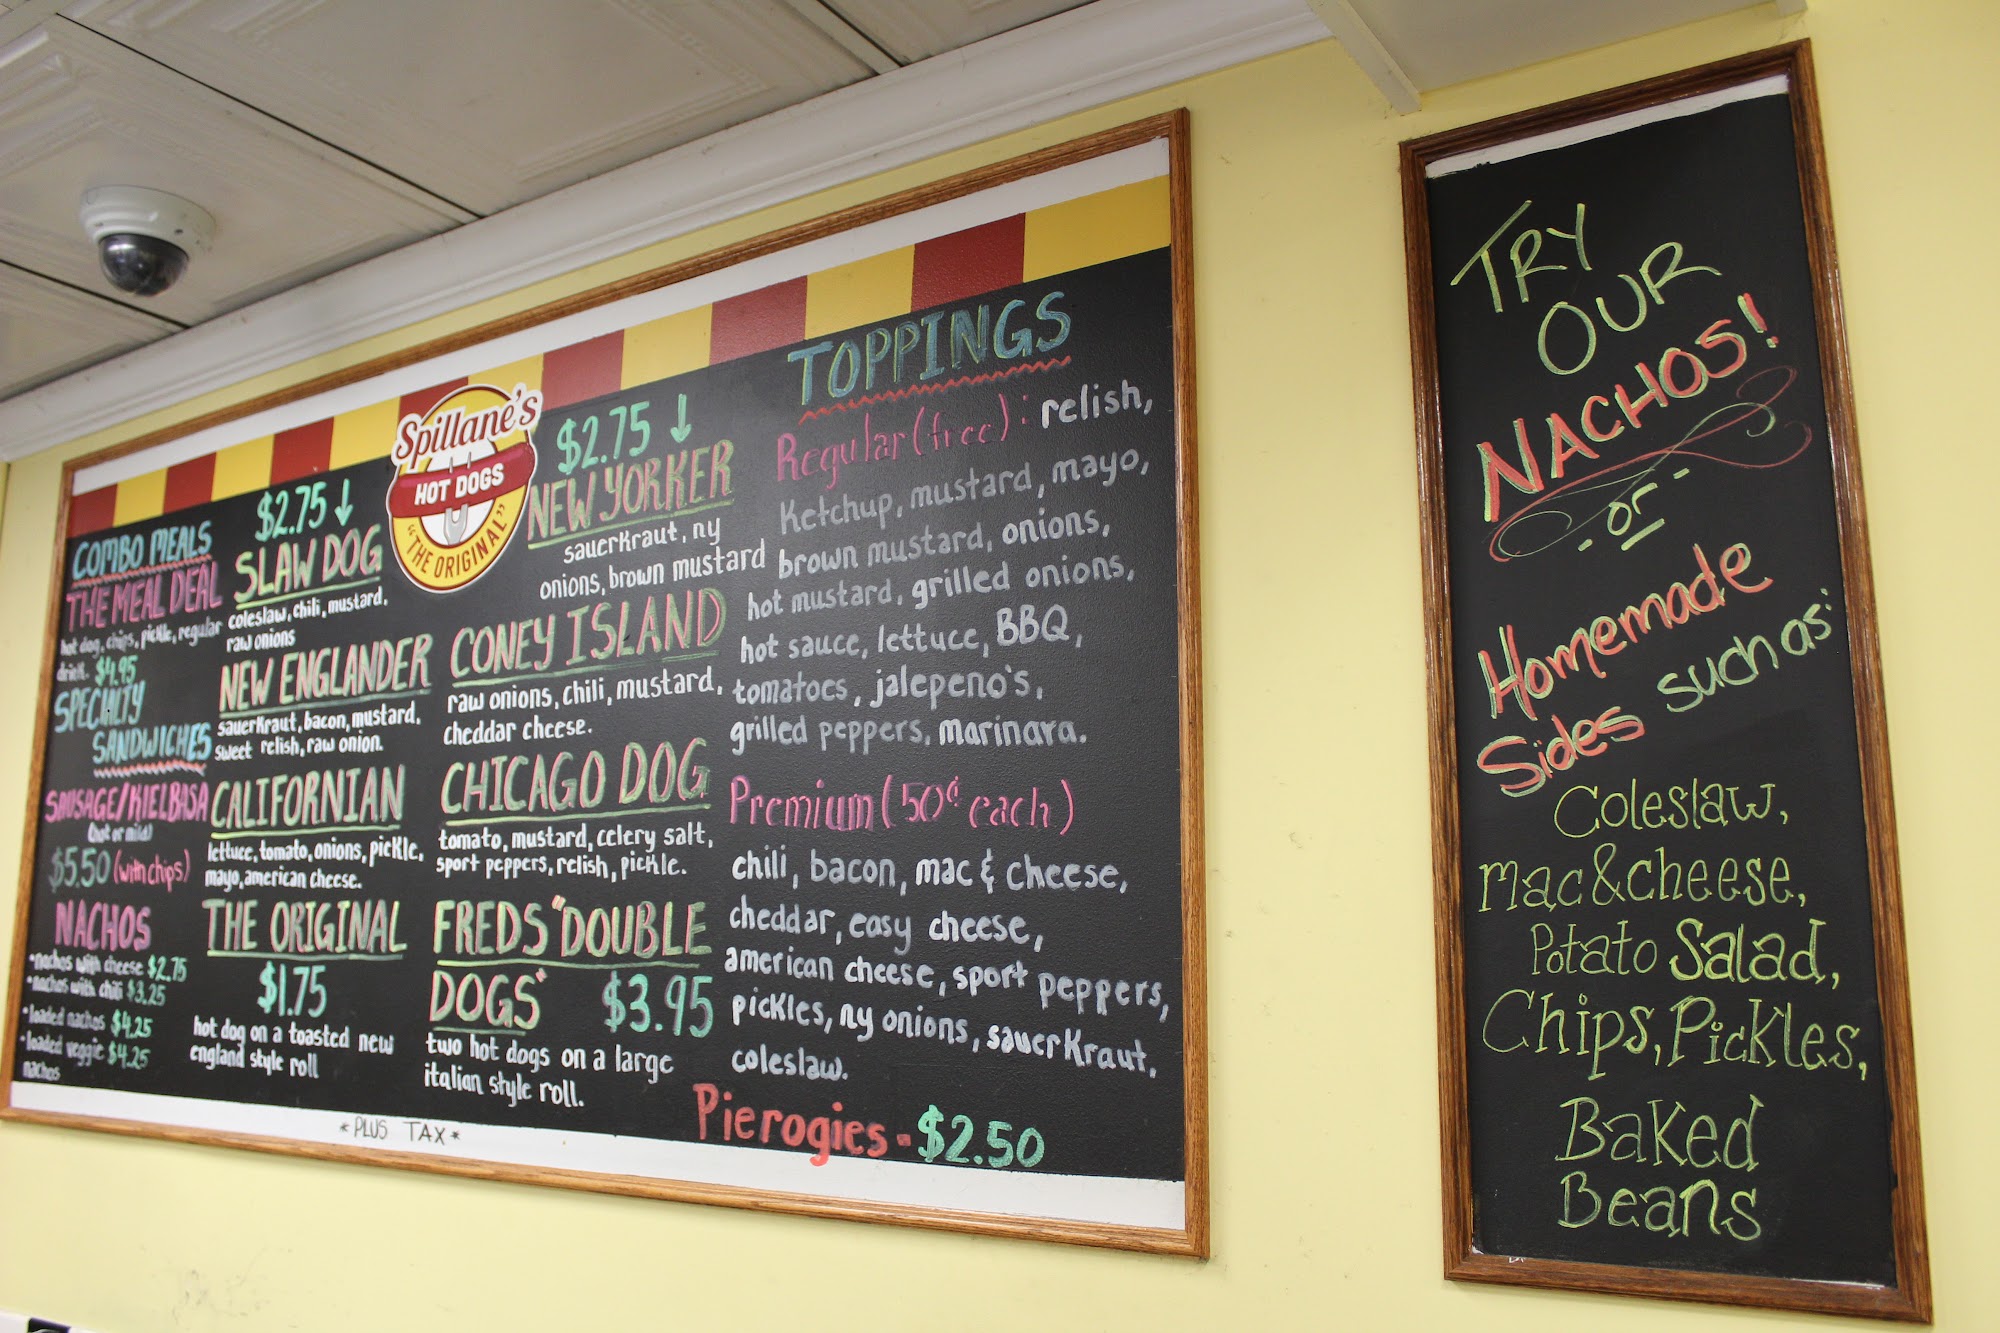 COMBO MEALS
THE MEAL DEAL
hot dog, chips, pickle, regular
drink. $4.95
SPECIALTY
SANDWICHES
SAUSAGE/KIELBASA
(hot or mild)
$5.50 (with chips)
NACHOS
*nachos with cheese $2.75
*nachos with chili $3.25
*loaded nachos $4.25
*loaded veggie $4.25
nachos
$2.75 ↓
SLAW DOG
coleslaw, chili, mustard,
raw onions
NEW ENGLANDER
sauerkraut, bacon, mustard,
sweet relish, raw onion.
CALIFORNIAN
lettuce, tomato, onions, pickle,
mayo, american cheese.
THE ORIGINAL
$1.75
hot dog on a toasted new
england style roll
Spillane's
HOT DOGS
"THE ORIGINAL"
$2.75 ↓
NEW YORKER
sauerkraut, ny
onions, brown mustard
CONEY ISLAND
raw onions, chili, mustard,
cheddar cheese.
CHICAGO DOG
tomato, mustard, celery salt,
sport peppers, relish, pickle.
FREDS "DOUBLE
DOGS" $3.95
two hot dogs on a large
italian style roll.
TOPPINGS
Regular (free): relish,
Ketchup, mustard, mayo,
brown mustard, onions,
hot mustard, grilled onions,
hot sauce, lettuce, BBQ,
tomatoes, jalepeno's,
grilled peppers, marinara.
Premium (50¢ each)
chili, bacon, mac & cheese,
cheddar, easy cheese,
american cheese, sport peppers,
pickles, ny onions, sauerkraut,
coleslaw.
Pierogies - $2.50
*PLUS TAX*
TRY
OUR
NACHOS!
- or -
Homemade
Sides such as:
Coleslaw,
Mac & cheese,
Potato Salad,
Chips, Pickles,
Baked
Beans